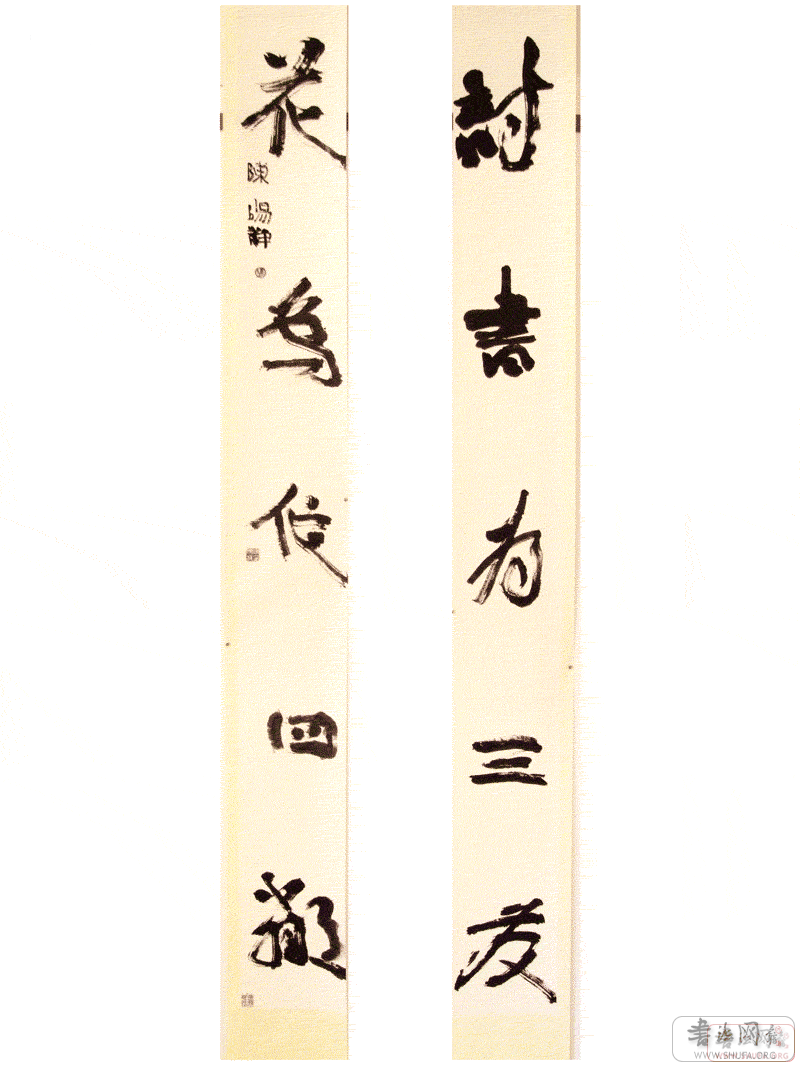 詩書為三友
花鳥四鄰
陳陽靜
書法网
WWW.SHUFAU.ORG